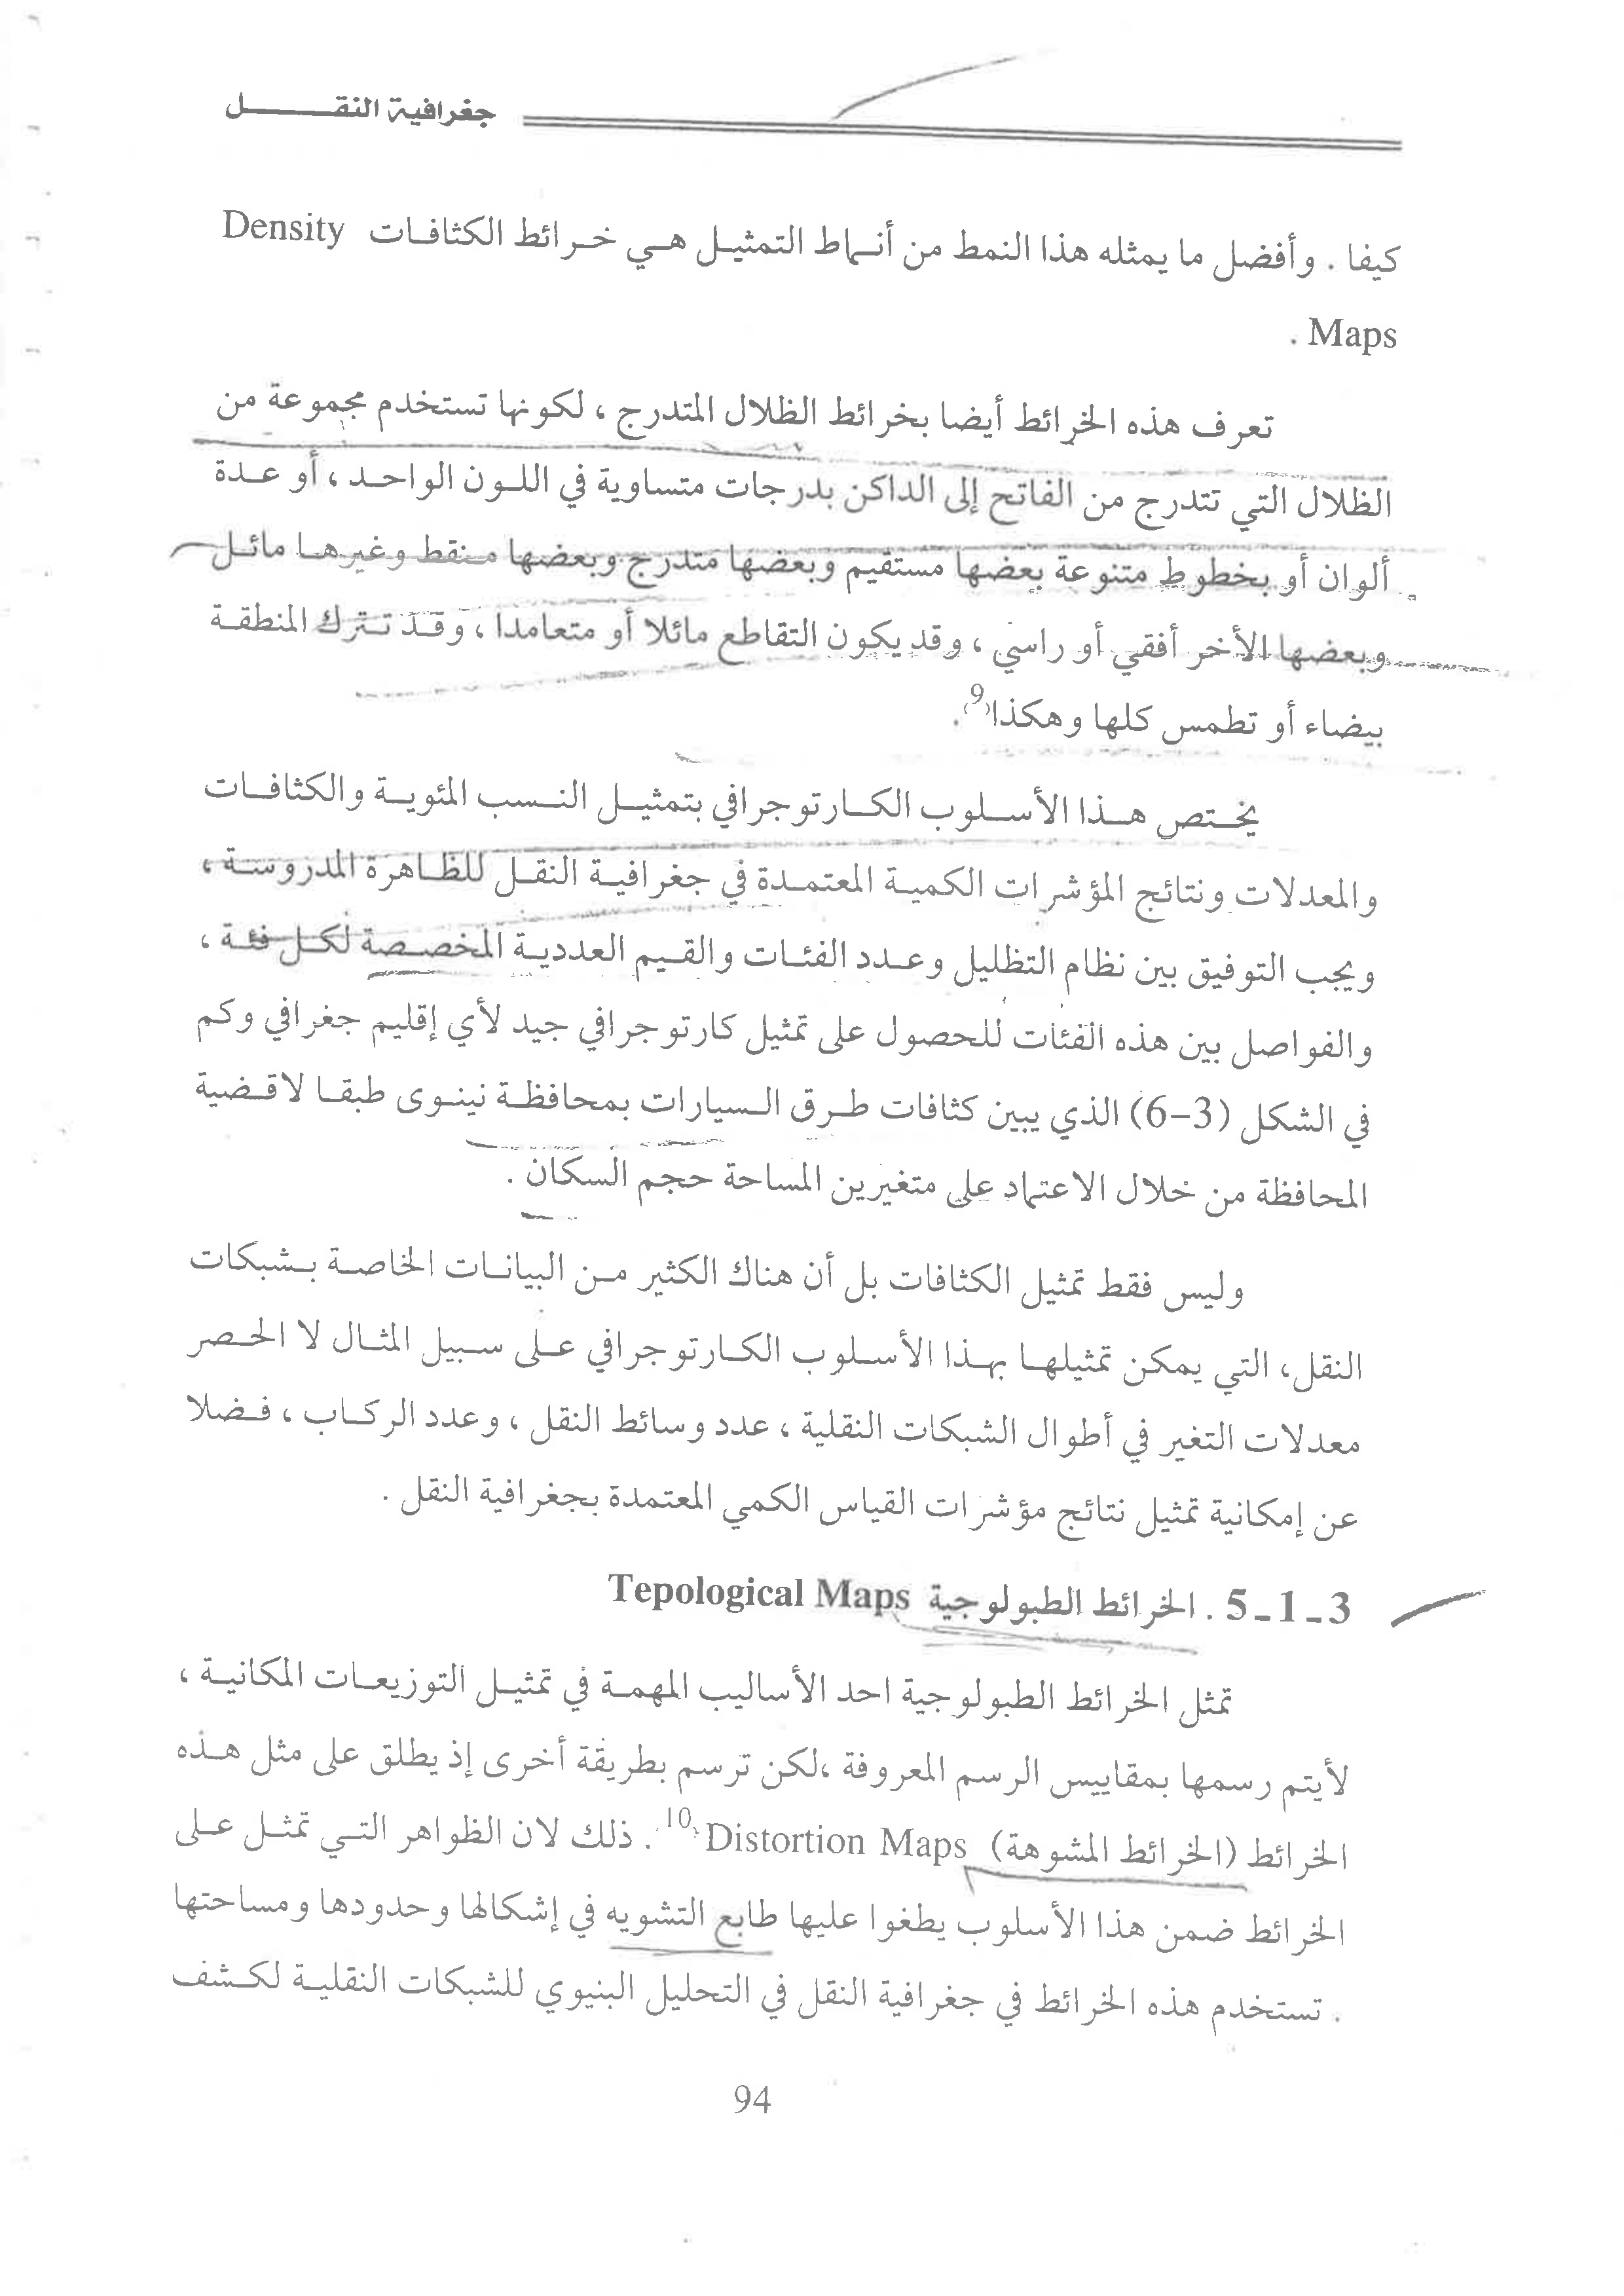 جغرافية النقـــــــل
كيفا . وأفضل ما يمثله هذا النمط من أنماط التمثيل هي خرائط الكثافات Density
Maps .
تعرف هذه الخرائط أيضا بخرائط الظلال المتدرج ، لكونها تستخدم مجموعة من
الظلال التي تتدرج من الفاتح إلى الداكن بدرجات متساوية في اللون الواحد ، أو عدة
ألوان أو بخطوط متنوعة بعضها مستقيم وبعضها متدرج وبعضها منقط وغيرها مائل
وبعضها الأخر أفقي أو راسي ، وقد يكون التقاطع مائلا أو متعامدا ، وقد تترك المنطقة
بيضاء أو تطمس كلها وهكذا(9).
يختص هذا الأسلوب الكارتوجرافي بتمثيل النسب المئوية والكثافات
والمعدلات ونتائج المؤشرات الكمية المعتمدة في جغرافية النقل للظاهرة المدروسة ،
ويجب التوفيق بين نظام التظليل وعدد الفئات والقيم العددية المخصصة لكل فئة ،
والفواصل بين هذه الفئات للحصول على تمثيل كارتوجرافي جيد لأي إقليم جغرافي وكم
في الشكل (3-6) الذي يبين كثافات طرق السيارات بمحافظة نينوى طبقا لاقضية
المحافظة من خلال الاعتماد على متغيرين المساحة حجم السكان .
وليس فقط تمثيل الكثافات بل أن هناك الكثير من البيانات الخاصة بشبكات
النقل، التي يمكن تمثيلها بهذا الأسلوب الكارتوجرافي على سبيل المثال لا الحصر
معدلات التغير في أطوال الشبكات النقلية ، عدد وسائط النقل ، وعدد الركاب ، فضلا
عن إمكانية تمثيل نتائج مؤشرات القياس الكمي المعتمدة بجغرافية النقل .
3-1-5 . الخرائط الطبولوجية Tepological Maps
تمثل الخرائط الطبولوجية احد الأساليب المهمة في تمثيل التوزيعات المكانية ،
لأيتم رسمها بمقاييس الرسم المعروفة ،لكن ترسم بطريقة أخرى إذ يطلق على مثل هذه
الخرائط (الخرائط المشوهة) Distortion Maps (10). ذلك لان الظواهر التي تمثل على
الخرائط ضمن هذا الأسلوب يطغوا عليها طابع التشويه في إشكالها وحدودها ومساحتها
. تستخدم هذه الخرائط في جغرافية النقل في التحليل البنيوي للشبكات النقلية لكشف
94